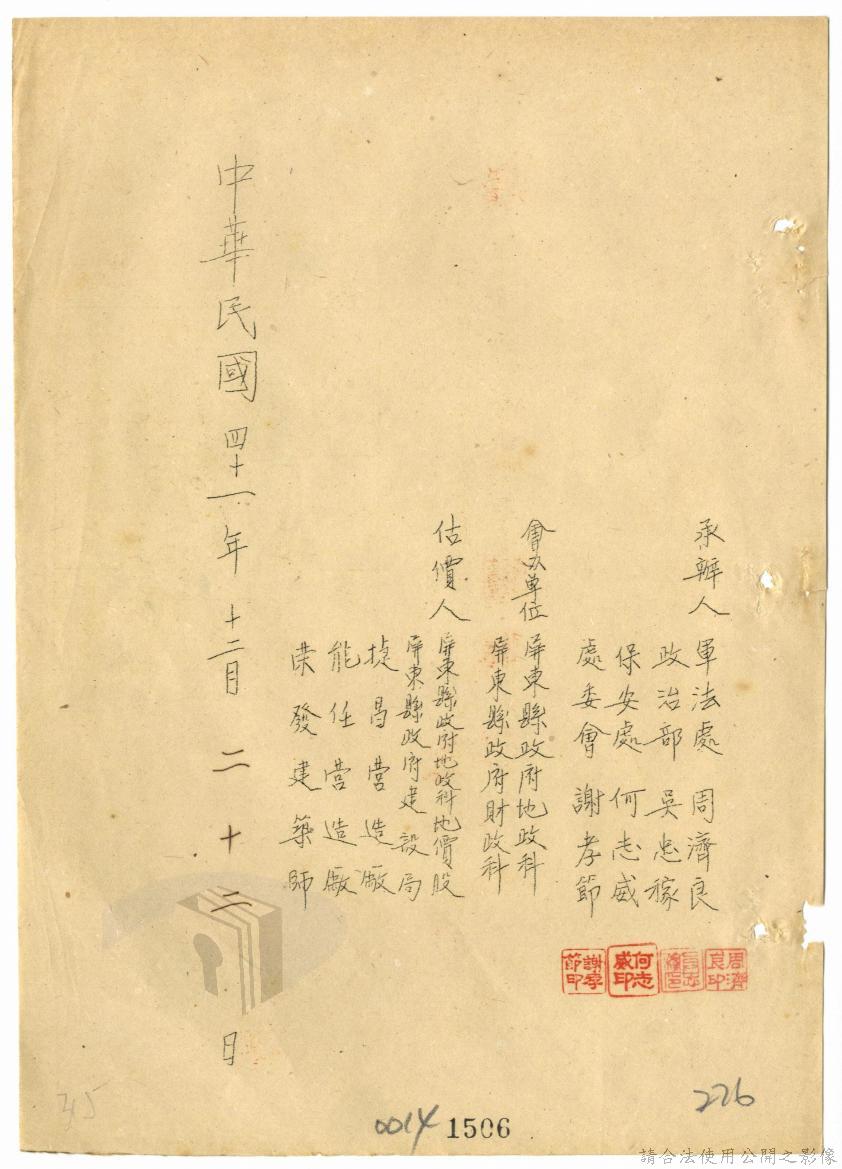 承辦人 軍法處 周濟良
政治部 吳忠稼
保安處 何志威
處委會 謝孝節
周濟良印
何志威印
謝孝節印
會办單位 屏東縣政府地政科
屏東縣政府財政科
估價人 屏東縣政府地政科地價股
屏東縣政府建設局
捷昌营造廠
能任营造廠
荣發建築師
中華民國四十一年十二月二十二日
315
0014
1506
226
請合法使用公開之影像